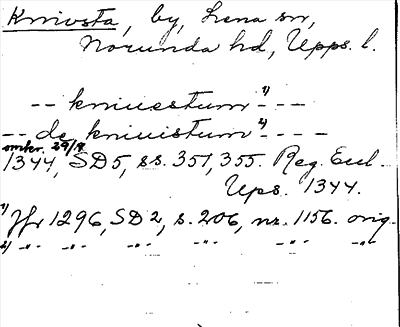 Knivsta, by, Lena sn,
Norunda hd, Upps. l.
-- kniuestum ¹⁾ - - -
-- de kniuistum ²⁾ - - - -
omkr. 29/8
1344, SD5, ss. 351, 355. Reg. Eccl.
Ups. 1344.
¹⁾ Jfr 1296, SD2, s. 206, nr. 1156. orig.
²⁾ -"- -"- -"- -"- -"- -"-